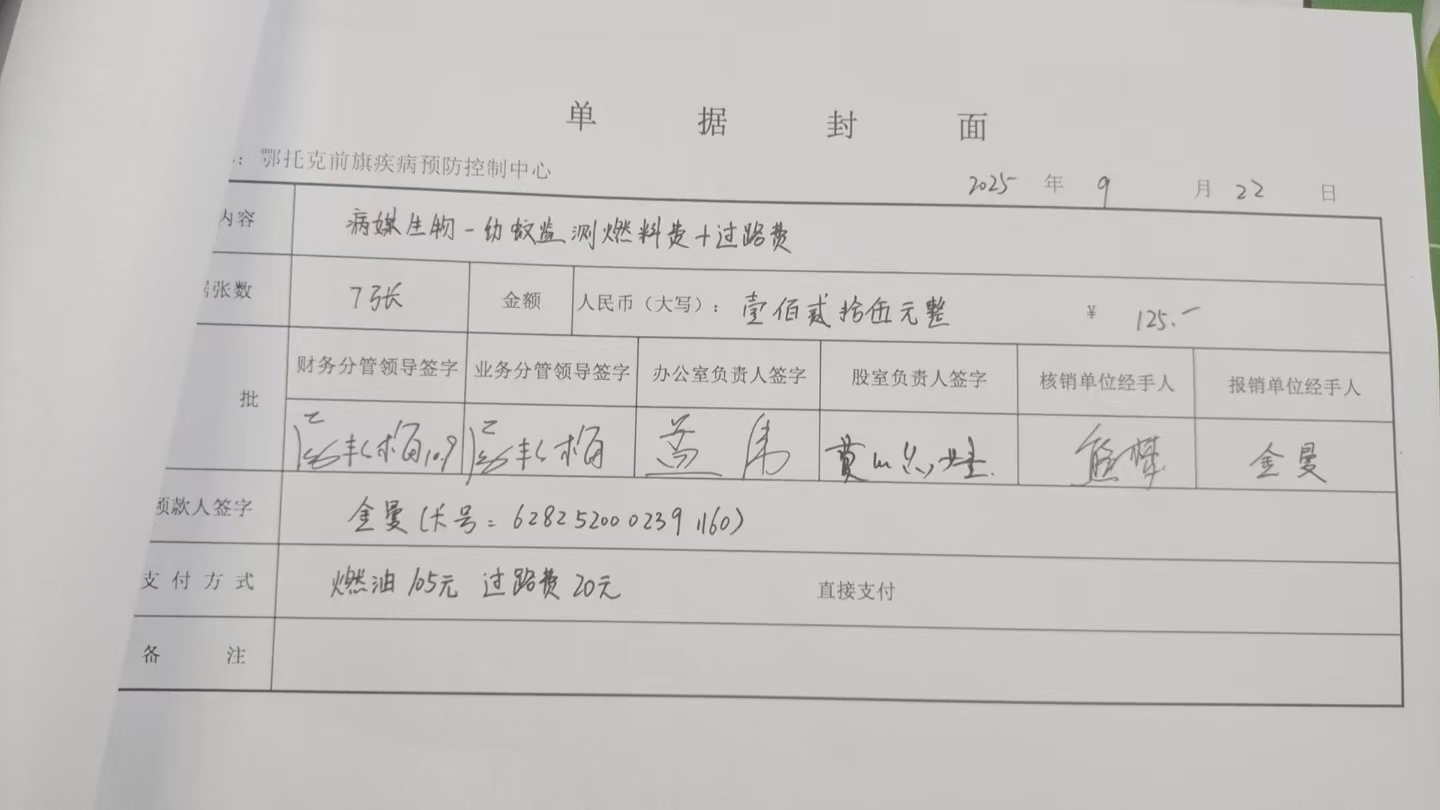 单据封面
：鄂托克前旗疾病预防控制中心
2025 年 9 月 22 日
内容 病媒生物-幼蚊监测燃料费+过路费
张数 7张 金额 人民币（大写）：壹佰贰拾伍元整 ￥ 125.-
批 财务分管领导签字 业务分管领导签字 办公室负责人签字 股室负责人签字 核销单位经手人 报销单位经手人
10.9 金曼
款人签字 金曼（卡号：6282520002391160）
支付方式 燃油105元 过路费20元 直接支付
备注